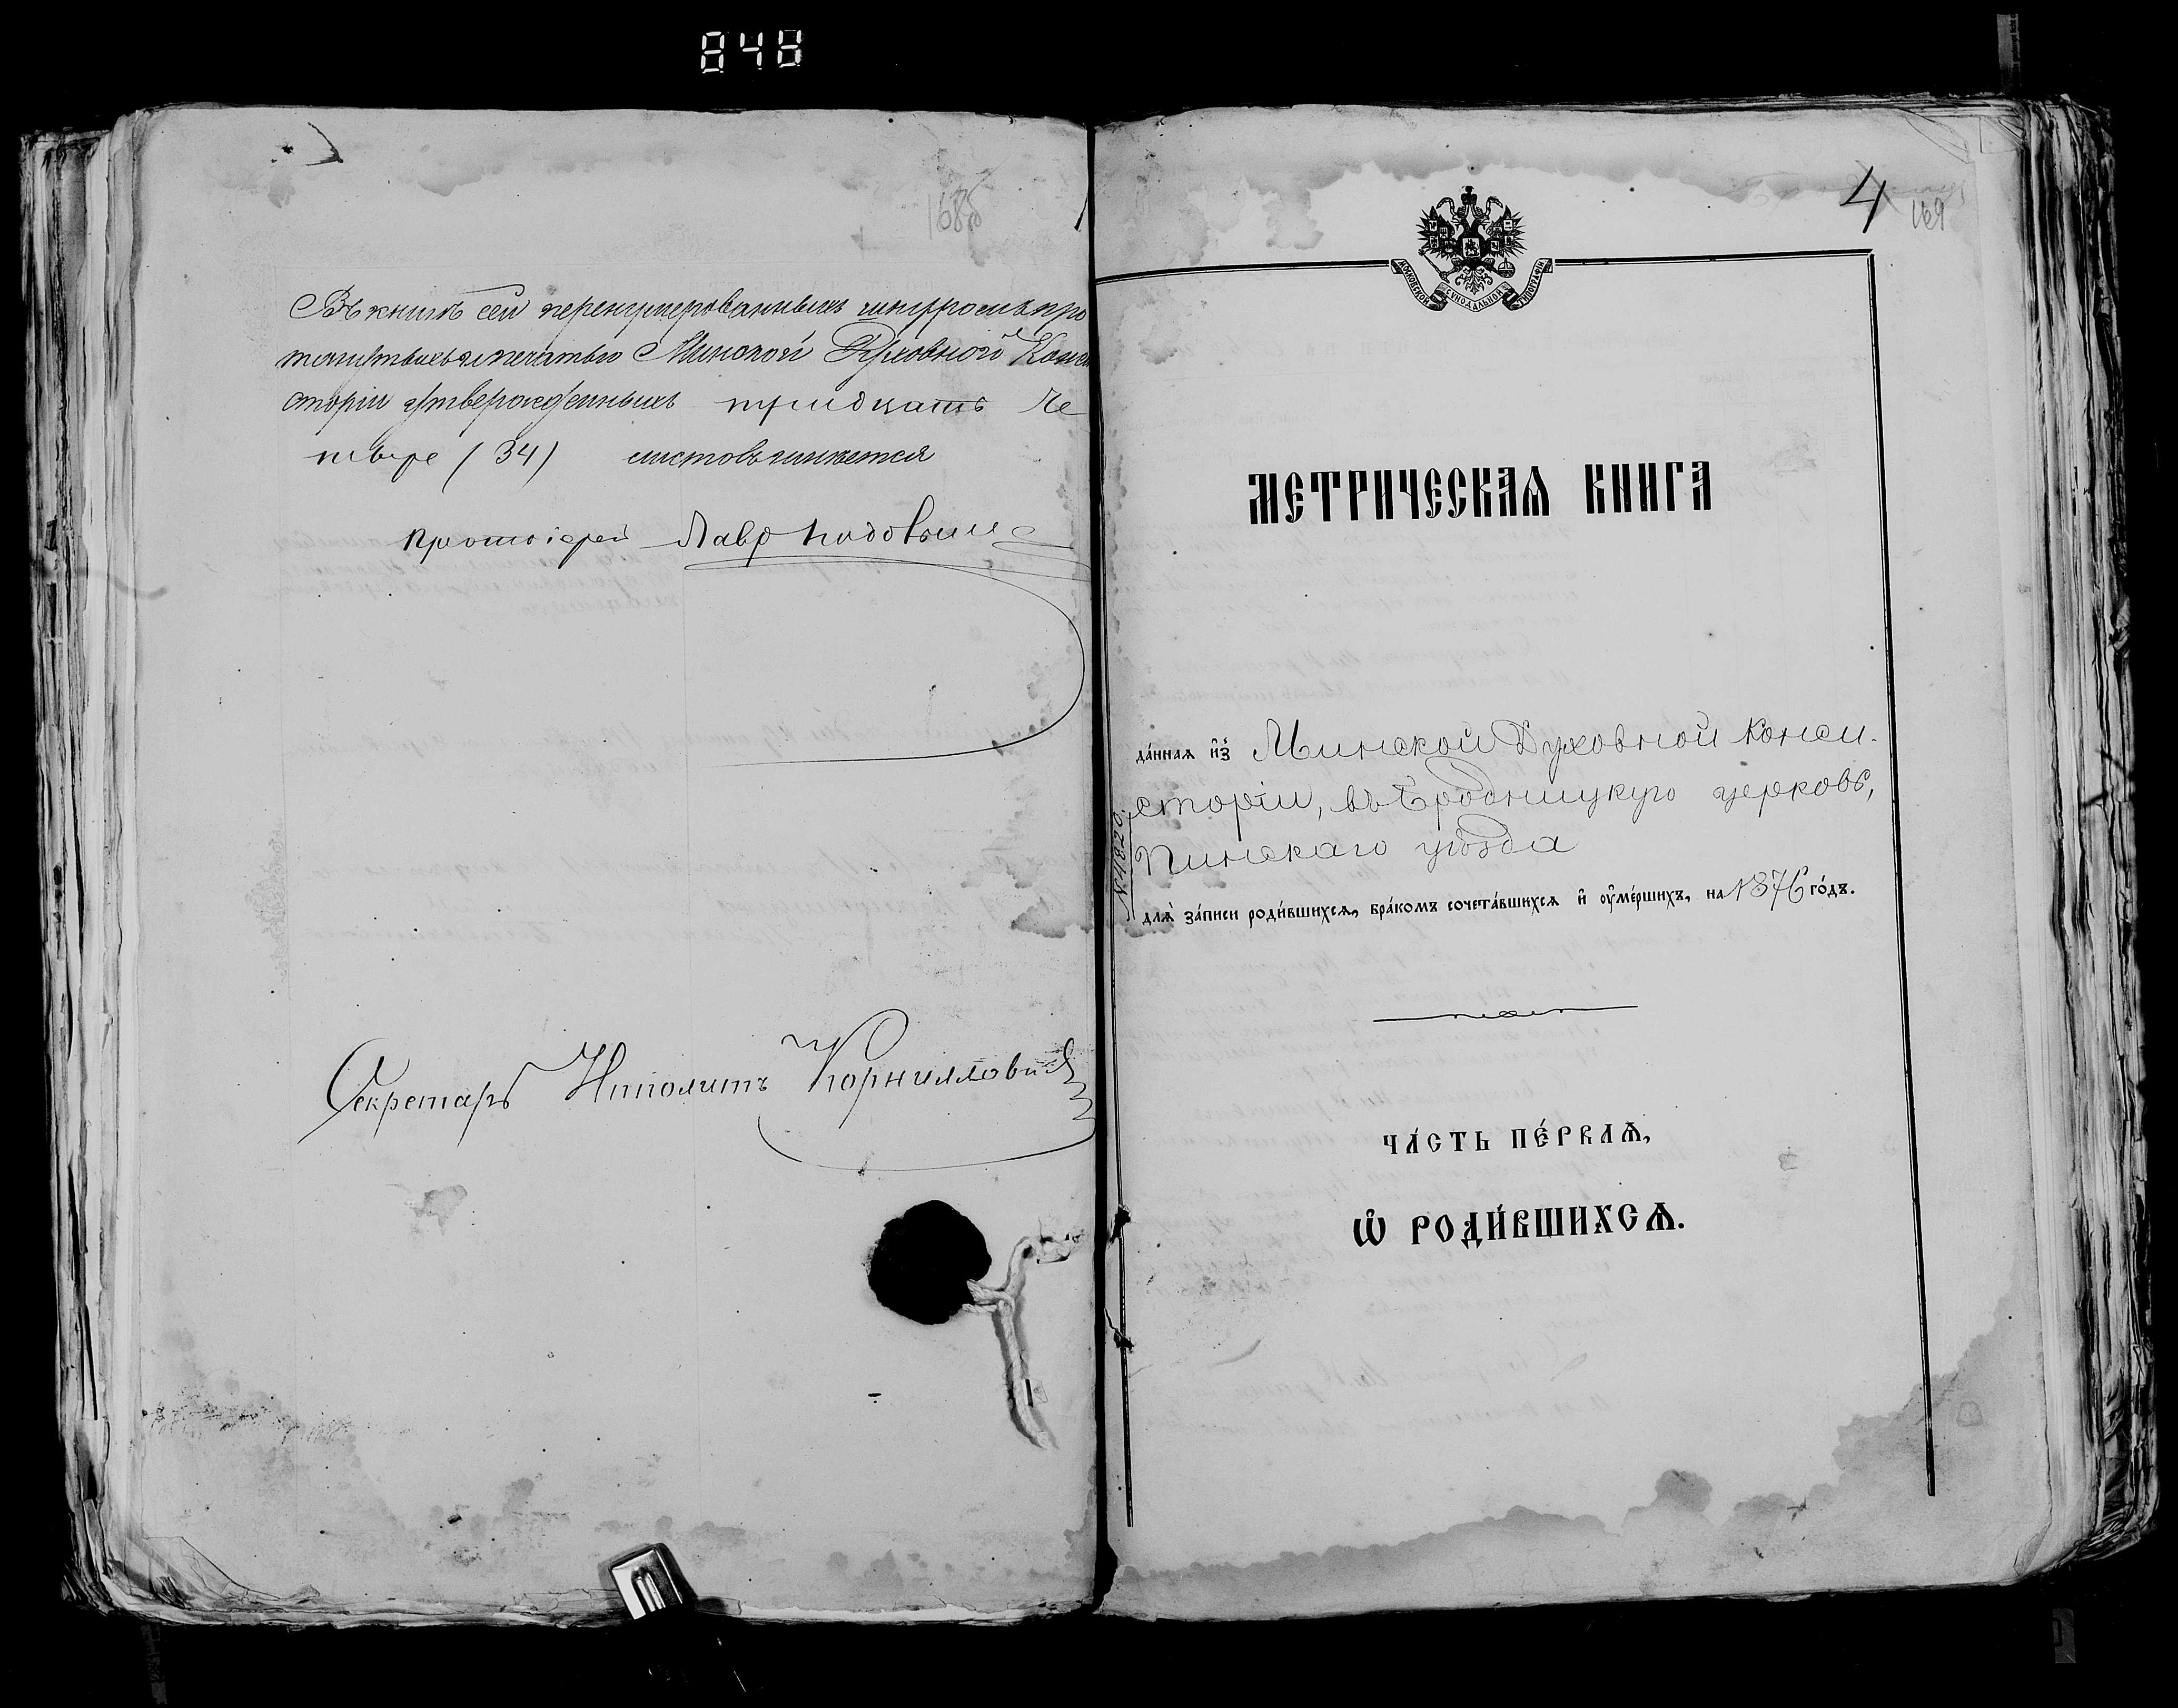 848
168б
Въ книгѣ сей перенумерованныхъ
печатью Минской Духовной Конси
сторіи утвержденныхъ тридцать че
тыре (34) листовъ имѣется
Протоіерей Лавр
Секретарь Ипполитъ Корниллович
4
169
МОСКОВСКОЙ СѴНОДАЛЬНОЙ ТИПОГРАФІИ
МЕТРИЧЕСКАѦ КНИГА
да́ннаѧ и҆з̾ Минской Духовной Конси-
сторіи, въ Бродницкую церковь,
Пинскаго уѣзда
№ 4820.
длѧ̀ за́писи роди́вшихсѧ, бра́комъ сочета́вшихсѧ и҆ ᲂу҆ме́ршихъ, на 1876 го́дъ.
ЧА́СТЬ ПЕ́РВАѦ,
Ѽ РОДИ́ВШИХСѦ.